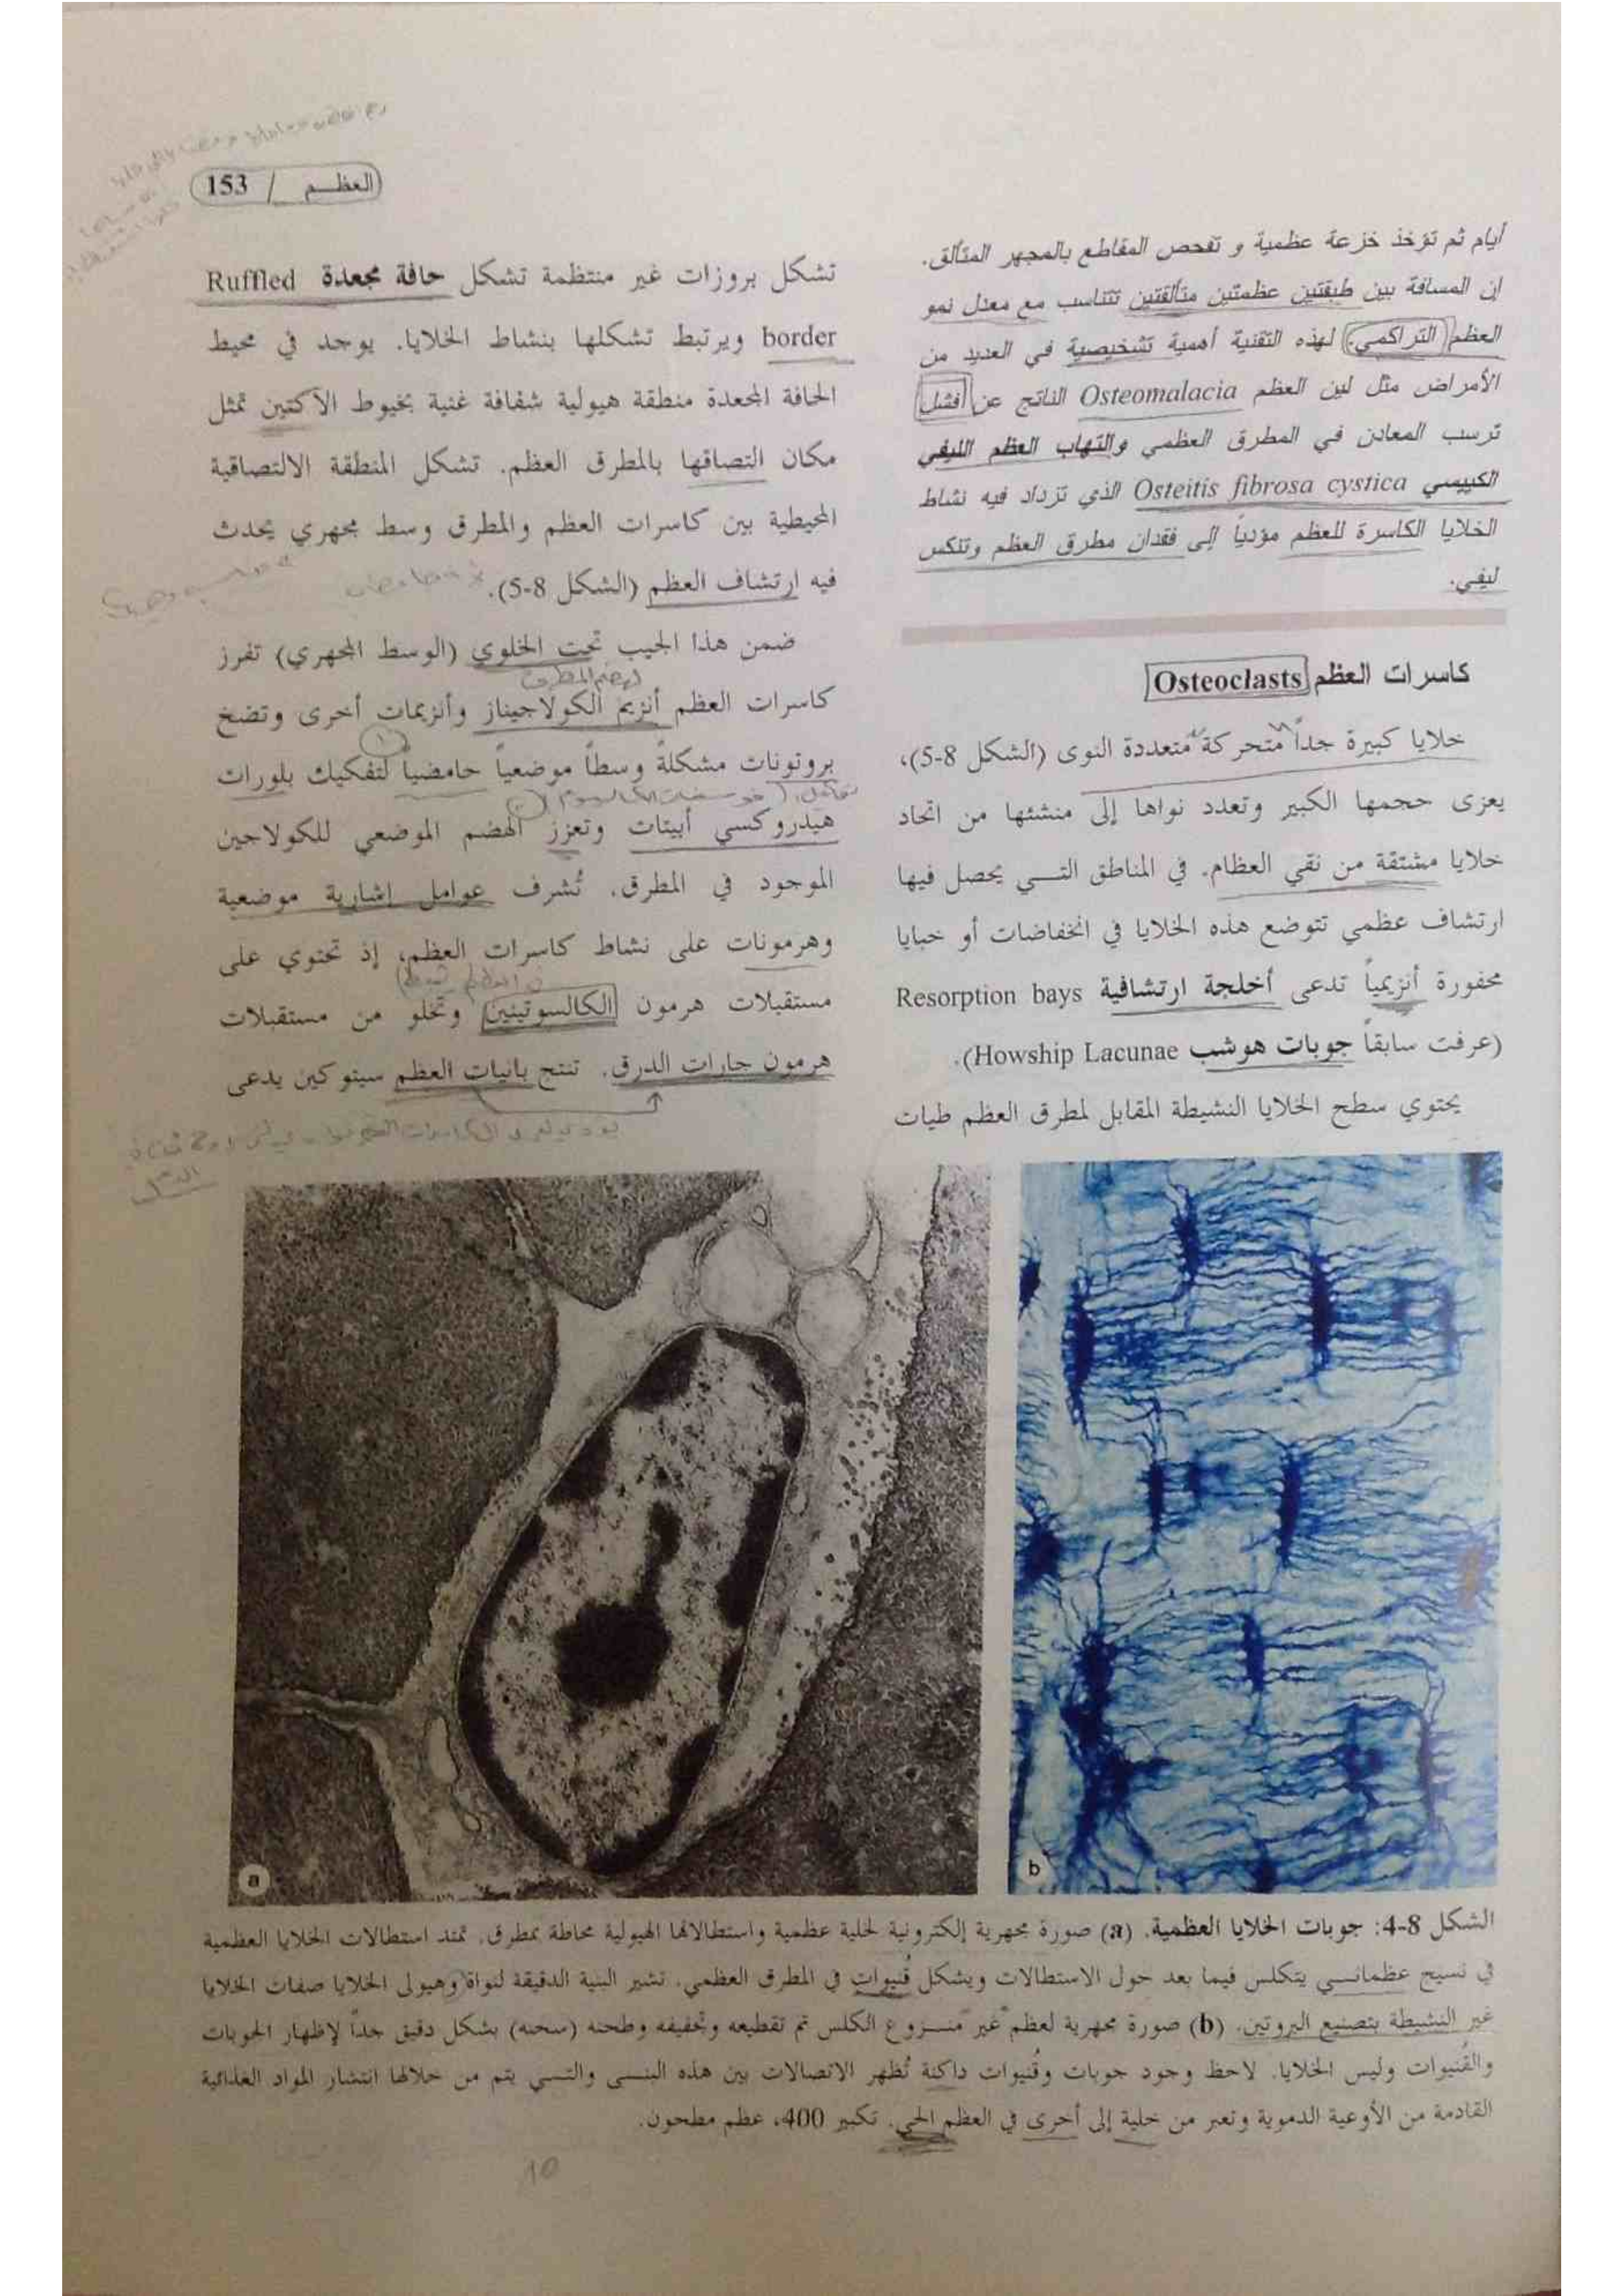 العظـــم / 153
أيام ثم تؤخذ خزعة عظمية و تفحص المقاطع بالمجهر المتألق.
إن المسافة بين طبقتين عظمتين متألقتين تتناسب مع معدل نمو
العظم التراكمي. لهذه التقنية أهمية تشخيصية في العديد من
الأمراض مثل لين العظم Osteomalacia الناتج عن فشل
ترسب المعادن في المطرق العظمي والتهاب العظم الليفي
الكييسي Osteitis fibrosa cystica الذي تزداد فيه نشاط
الخلايا الكاسرة للعظم مؤدياً إلى فقدان مطرق العظم وتنكس
ليفي.
كاسرات العظم Osteoclasts
خلايا كبيرة جداً متحركة متعددة النوى (الشكل 8-5)،
يعزى حجمها الكبير وتعدد نواها إلى منشئها من اتحاد
خلايا مشتقة من نقي العظام. في المناطق التـــي يحصل فيها
ارتشاف عظمي تتوضع هذه الخلايا في انخفاضات أو خبايا
محفورة أنزيمياً تدعى أخلجة ارتشافية Resorption bays
(عرفت سابقاً جوبات هوشب Howship Lacunae).
يحتوي سطح الخلايا النشيطة المقابل لمطرق العظم طيات
تشكل بروزات غير منتظمة تشكل حافة مجعدة Ruffled
border ويرتبط تشكلها بنشاط الخلايا. يوجد في محيط
الحافة المجعدة منطقة هيولية شفافة غنية بخيوط الأكتين تمثل
مكان التصاقها بالمطرق العظم. تشكل المنطقة الالتصاقية
المحيطية بين كاسرات العظم والمطرق وسط مجهري يحدث
فيه ارتشاف العظم (الشكل 8-5).
ضمن هذا الجيب تحت الخلوي (الوسط المجهري) تفرز
كاسرات العظم أنزيم الكولاجيناز وأنزيمات أخرى وتضخ
بروتونات مشكلةً وسطاً موضعياً حامضياً لتفكيك بلورات
هيدروكسي أبيتات وتعزز الهضم الموضعي للكولاجين
الموجود في المطرق. تُشرف عوامل إشارية موضعية
وهرمونات على نشاط كاسرات العظم، إذ تحتوي على
مستقبلات هرمون الكالسوتينين وتخلو من مستقبلات
هرمون جارات الدرق. تنتج بانيات العظم سيتوكين يدعى
a
b
الشكل 8-4: جوبات الخلايا العظمية. (a) صورة مجهرية إلكترونية لخلية عظمية واستطالاتها الهيولية محاطة بمطرق. تمتد استطالات الخلايا العظمية
في نسيج عظمانـــي يتكلس فيما بعد حول الاستطالات ويشكل قُنيوات في المطرق العظمي. تشير البنية الدقيقة لنواة وهيولى الخلايا صفات الخلايا
غير النشيطة بتصنيع البروتين. (b) صورة مجهرية لعظم غير منـــزوع الكلس تم تقطيعه وتخفيفه وطحنه (سحنه) بشكل دقيق جداً لإظهار الجوبات
والقُنيوات وليس الخلايا. لاحظ وجود جوبات وقُنيوات داكنة تُظهر الاتصالات بين هذه البنـــى والتـــي يتم من خلالها انتشار المواد الغذائية
القادمة من الأوعية الدموية وتعبر من خلية إلى أخرى في العظم الحي. تكبير 400، عظم مطحون.
10